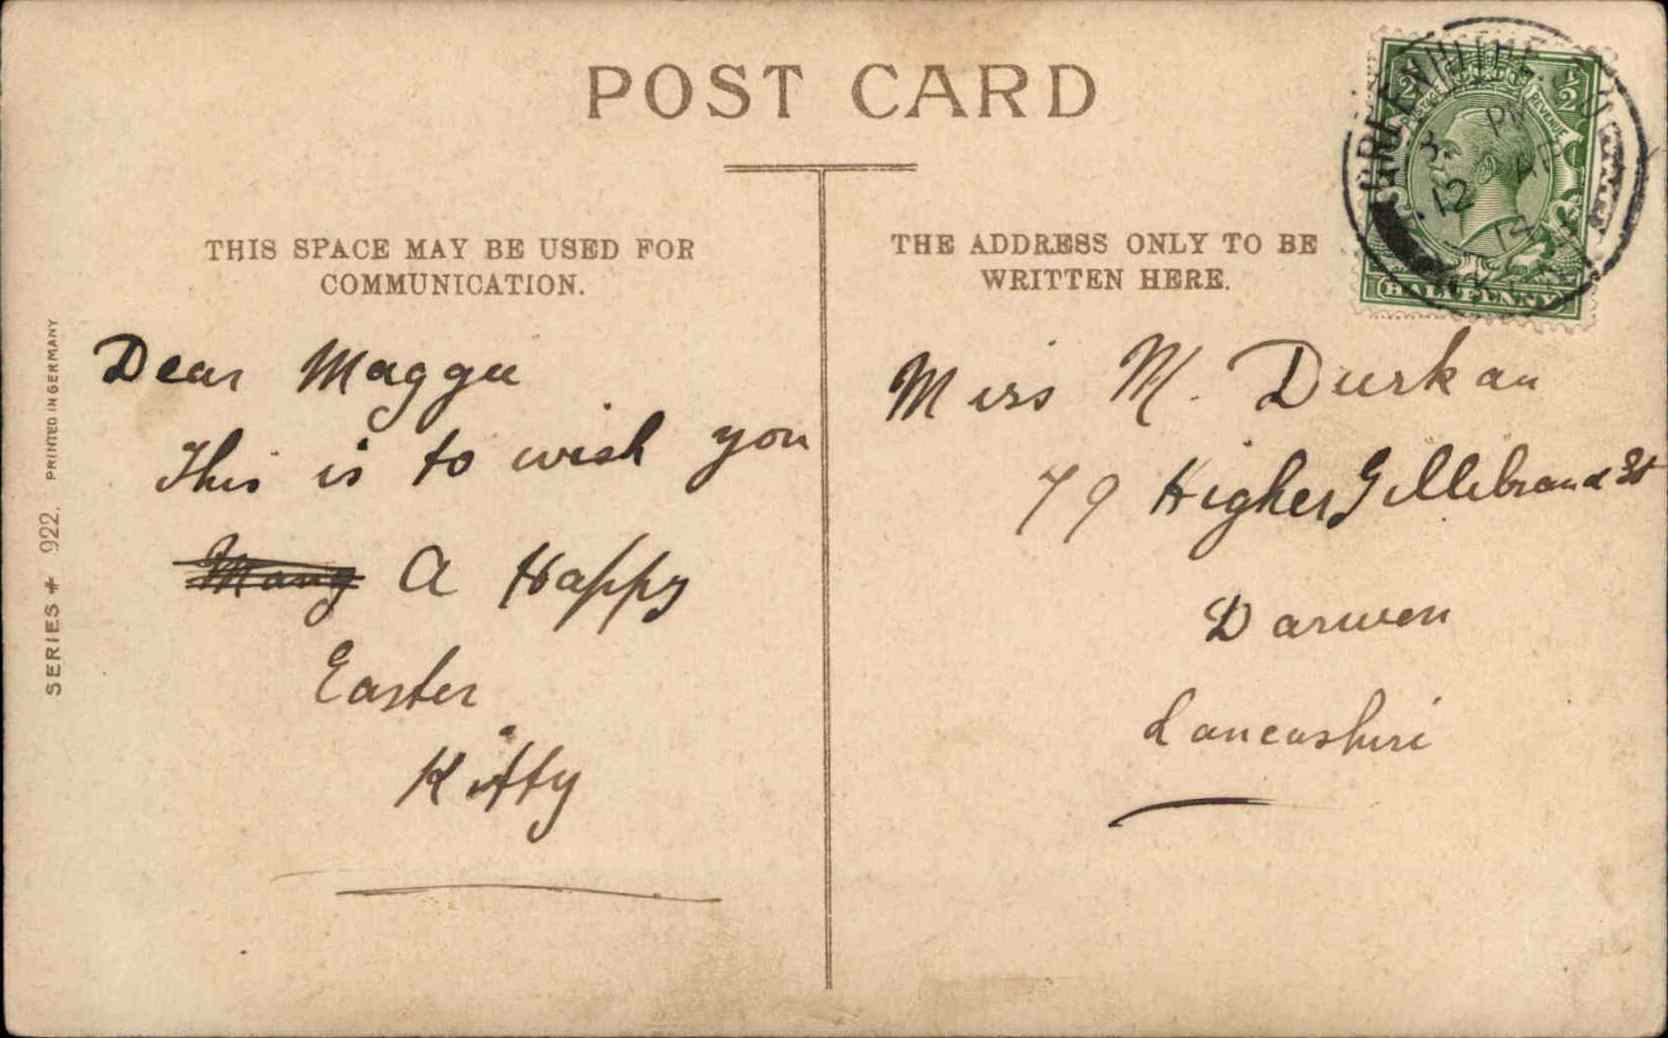 POST CARD
THIS SPACE MAY BE USED FOR
COMMUNICATION.
THE ADDRESS ONLY TO BE
WRITTEN HERE.
Dear Maggie
This is to wish you
Many A Happy
Easter
Kitty
Miss M. Durkan
79 Higher Gillibrand St
Darwen
Lancashire
SERIES 922. PRINTED IN GERMANY
GREENHITHE
3 PM
12 AP
14
1/2 POSTAGE REVENUE 1/2
HALFPENNY